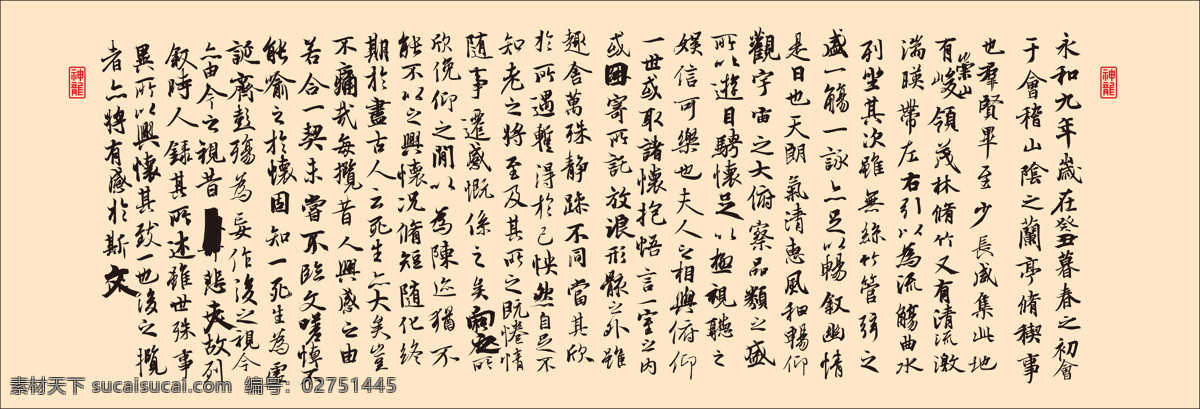 神龍
永和九年歲在癸丑暮春之初會
于會稽山陰之蘭亭脩稧事
也羣賢畢至少長咸集此地
有崇山峻領茂林脩竹又有清流激
湍暎帶左右引以為流觴曲水
列坐其次雖無絲竹管弦之
盛一觴一詠亦足以暢叙幽情
是日也天朗氣清惠風和暢仰
觀宇宙之大俯察品類之盛
所以遊目騁懷足以極視聽之
娛信可樂也夫人之相與俯仰
一世或取諸懷抱悟言一室之內
或因寄所託放浪形骸之外雖
趣舍萬殊静躁不同當其欣
於所遇暫得於己怏然自足不
知老之將至及其所之既惓情
随事遷感慨係之矣向之所
欣俛仰之閒以為陳迹猶不
能不以之興懷況脩短随化終
期於盡古人云死生亦大矣豈
不痛哉每攬昔人興感之由
若合一契未嘗不臨文嗟悼不
能喻之於懷固知一死生為虛
誕齊彭殤為妄作後之視今
亦由今之視昔悲夫故列
叙時人錄其所述雖世殊事
異所以興懷其致一也後之攬
者亦將有感於斯文
神龍
素材天下 sucaisucai.com 编号：02751445